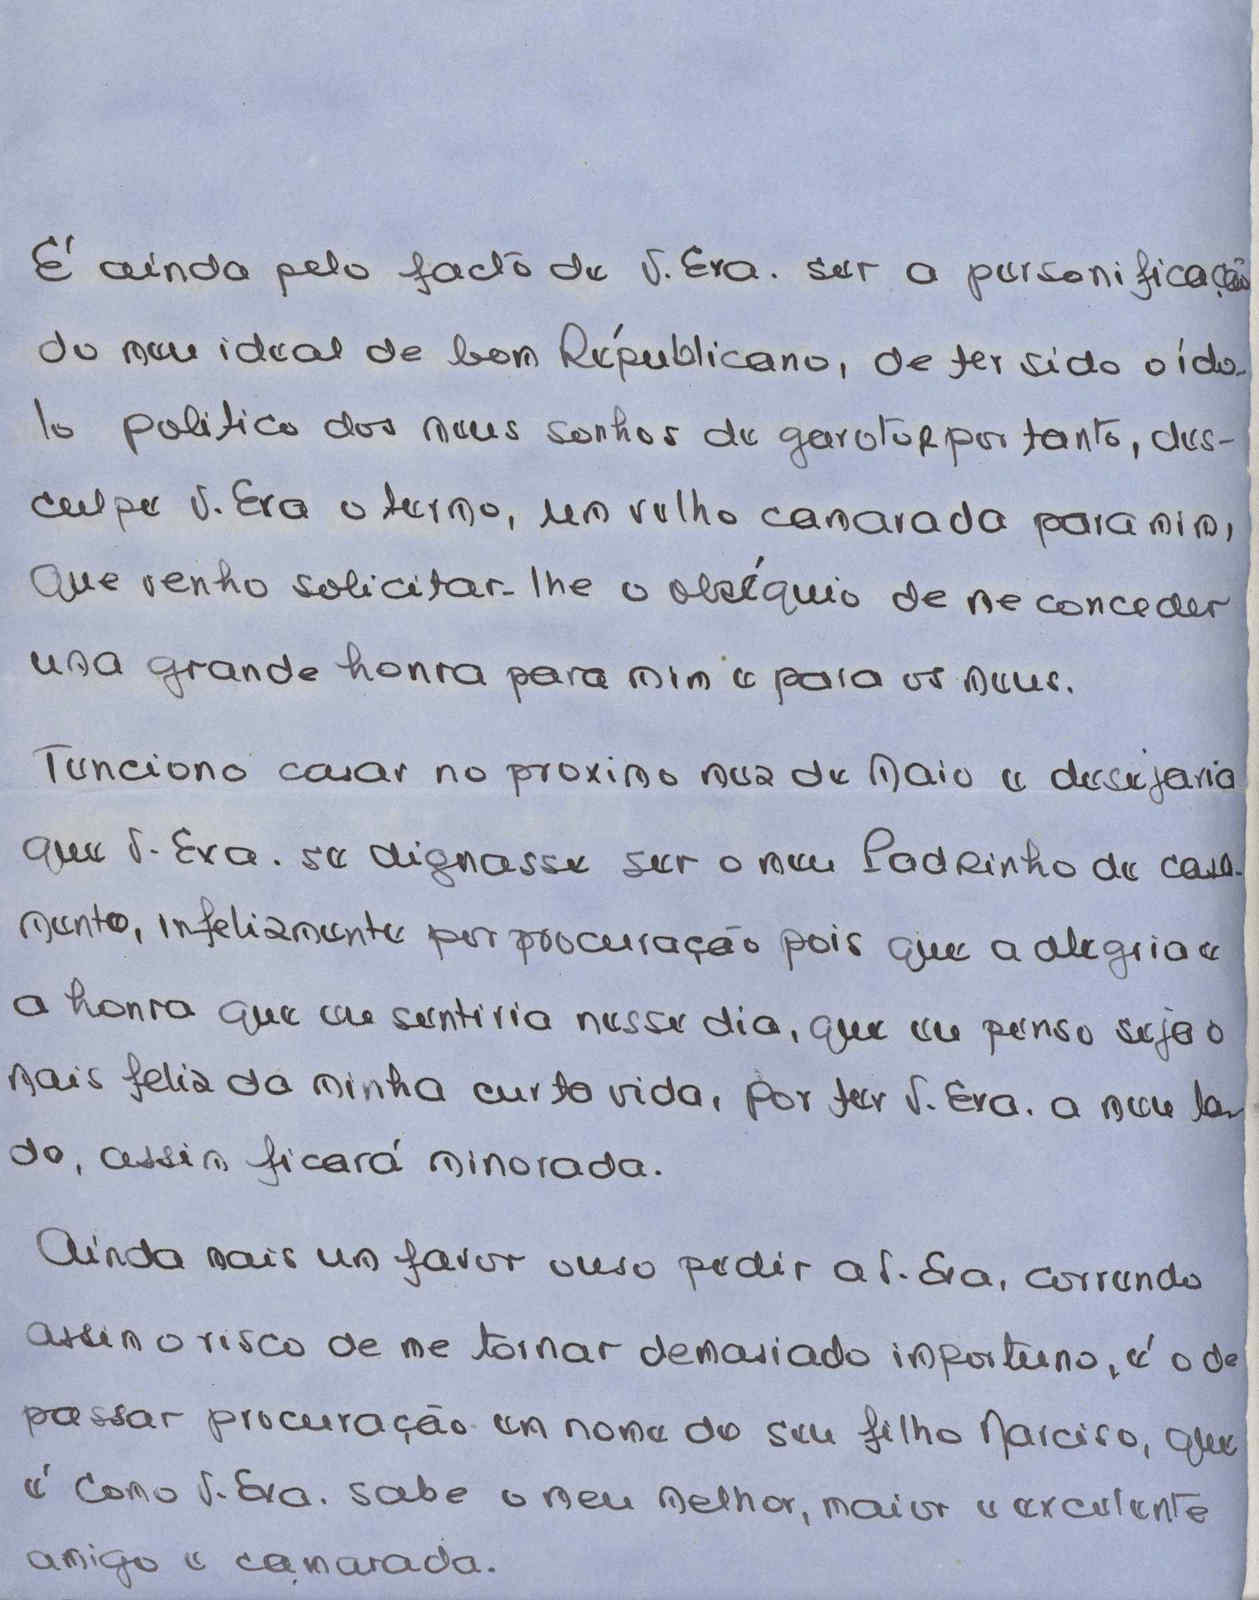 É ainda pelo facto de V. Exa. ser a personificação
do meu ideal de bom Républicano, de ter sido o ído-
lo politico dos meus sonhos de garoto e portanto, des-
culpe V. Exa o termo, um velho camarada para mim,
que venho solicitar-lhe o obséquio de me conceder
uma grande honra para mim e para os meus.
Tenciono casar no proximo mez de Maio e desejaria
que V. Exa. se dignasse ser o meu Padrinho de casa-
mento, infelizmente por procuração pois que a alegria e
a honra que eu sentiria nesse dia, que eu penso seja o
mais feliz da minha curta vida, por ter V. Exa. a meu la-
do, assim ficará minorada.
Ainda mais um favor ouso pedir a V. Exa, correndo
assim o risco de me tornar demasiado importuno, é o de
passar procuração em nome do seu filho Narciso, que
é como V. Exa. sabe o meu melhor, maior e excelente
amigo e camarada.